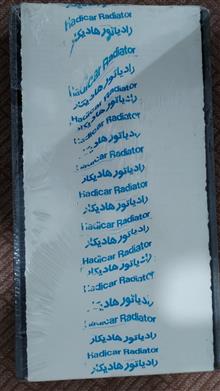 Hadicar Radiator
رادیاتور هادیکار
Hadicar Radiator
رادیاتور هادیکار
Hadicar Radiator
رادیاتور هادیکار
Hadicar Radiator
رادیاتور هادیکار
Hadicar Radiator
رادیاتور هادیکار
Hadicar Radiator
رادیاتور هادیکار
Hadicar Radiator
رادیاتور هادیکار
Hadicar Radiator
رادیاتور هادیکار
Hadicar Radiator
رادیاتور هادیکار
Hadicar Radiator
رادیاتور هادیکار